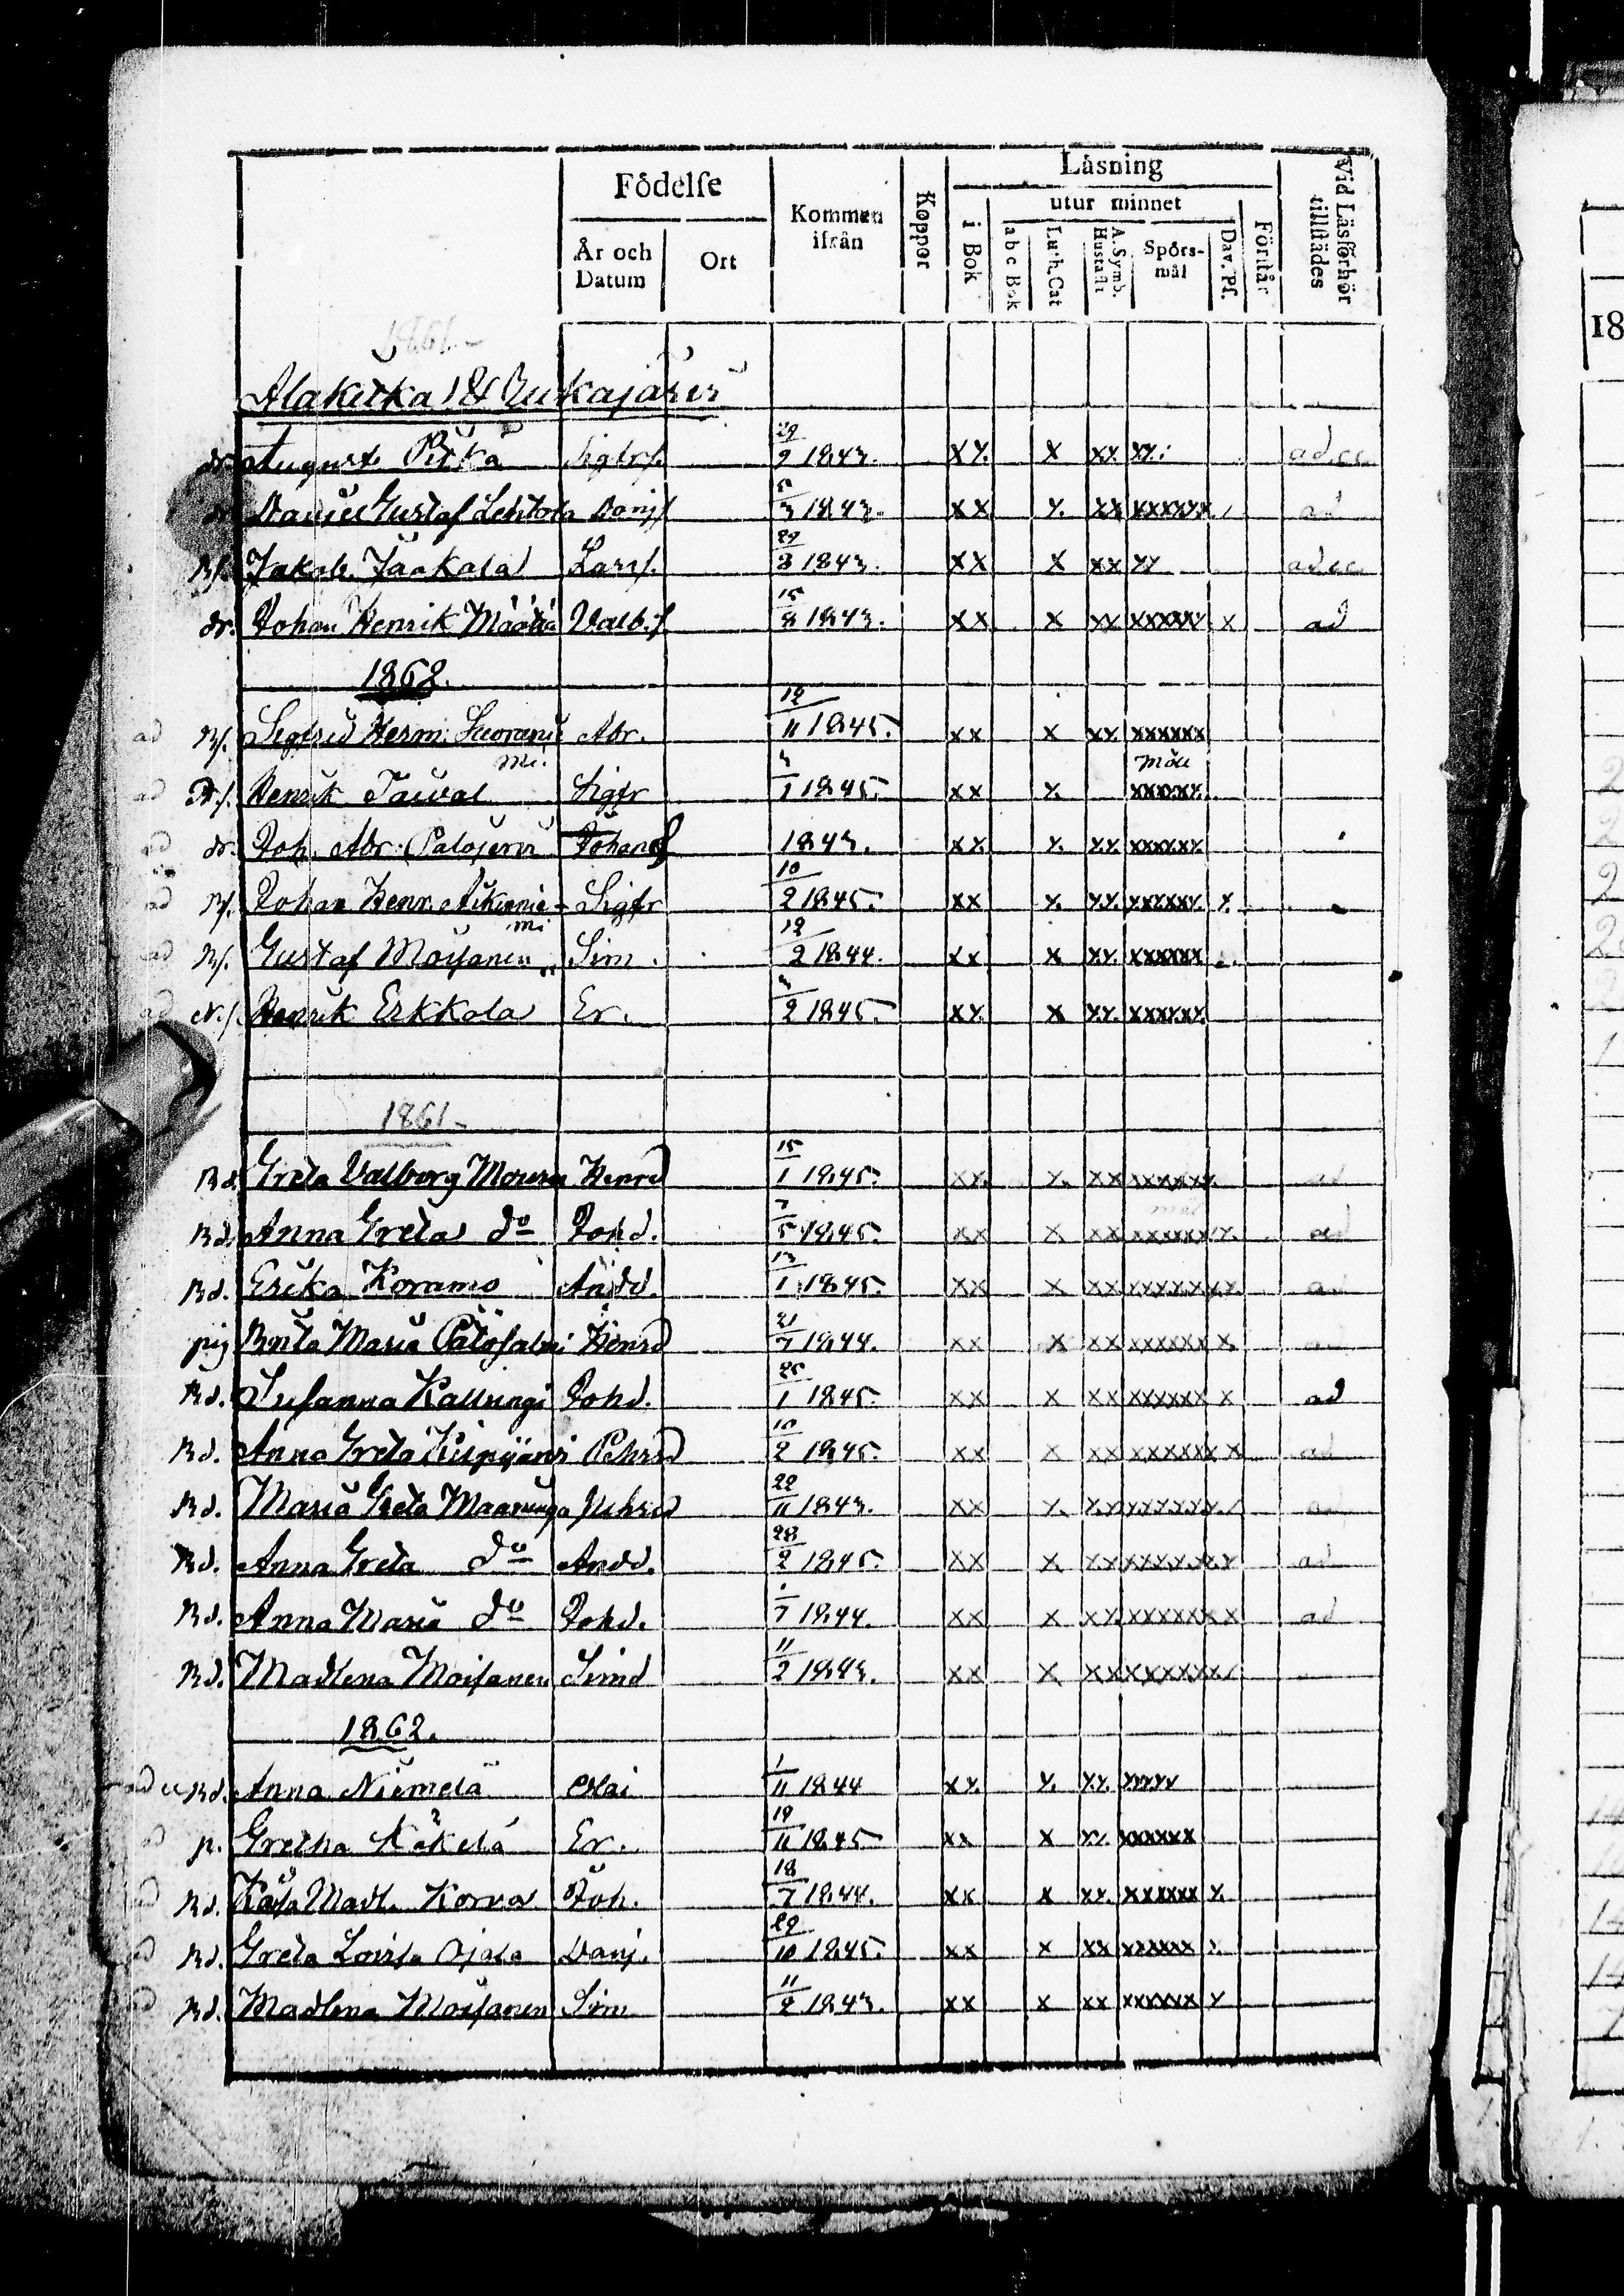 Födelse
Läsning
Vid Läsförhör tillstädes
År och Datum
Ort
Kommen ifrån
Koppor
i Bok
utur minnet
a b c Bok
Luth. Cat
A. Symb. Hustafl:
Spörs-mål
Dav. Ps.
Förstår
1861.-
Alakitka &
dr. August Pitkä Sigfr:s. 29/9 1843. xx x xx xx ad.cc
Daniel Gustaf Lehtola Danj:s 5/3 1843. xx x xx xxxxxx ad
Bs. Jakob Jaakola Lars:s. 29/8 1843. xx x xx xx ad.cc
dr. Johan Henrik Määttä Valb:s 15/8 1843. xx x xx xxxxx x ad
1862.
ad Bs. Sigfrid Herm. Abr. 12/11 1845. xx x xx xxxxxx
ad Henrik Taival Sigfr 1 1845. xx x xxxxxx
dr. Joh. Abr. Palojervi Johans 1843. xx x xx xxxxxx
ad Bs. Johan Henr. Sigfr 10/2 1845. xx x xx xxxxxx x
ad Bs. Gustaf Moisanen Sim. 12/2 1844. xx x xx xxxxxx
ad Henrik Erkkola Er. 2 1845. xx x xx xxxxxx
1861-
Bd. Greta Valborg Henrd 15/1 1845. xx x xx xxxxxx ad
Bd. Anna Greta do Johd. 7/5 1845. xx x xx xxxxxx x ad
Bd. Erika Koramo Andd. 13/1 1845. xx x xx xxxxxx x ad
pig Brita Maria Henrd 21/7 1844. xx x xx xxxxxx x
Bd. Susanna Kallungi Johd. 25/1 1845. xx x xx xxxxxx x ad
Bd. Anna Greta Pehrsd 10/2 1845. xx x xx xxxxxx x ad
Bd. Maria Greta Maaninga 22/11 1843. xx x xx xxxxxx
Bd. Anna Greta do Andd. 28/2 1845. xx x xx xxxxxx x ad
Bd. Anna Maria do Johd. 7 1844. xx x xx xxxxxx x ad
Bd. Madlena Moisanen Simd 11/2 1843. xx x xx xxxxxx
1862.
ad cc Bd. Anna Niemelä 1/11 1844 xx x xx xxxxx
p. Gretha Käkelä Er. 19/11 1845 xx x xx xxxxxx
Bd. Kajsa Madl. Korva Joh. 18/7 1844. xx x xx xxxxxx x
Bd. Greta Lovisa Ojala Danj. 29/10 1845. xx x xx xxxxxx x
Bd. Madlena Moisanen Sim 11/2 1843. xx x xx xxxxxx x
18